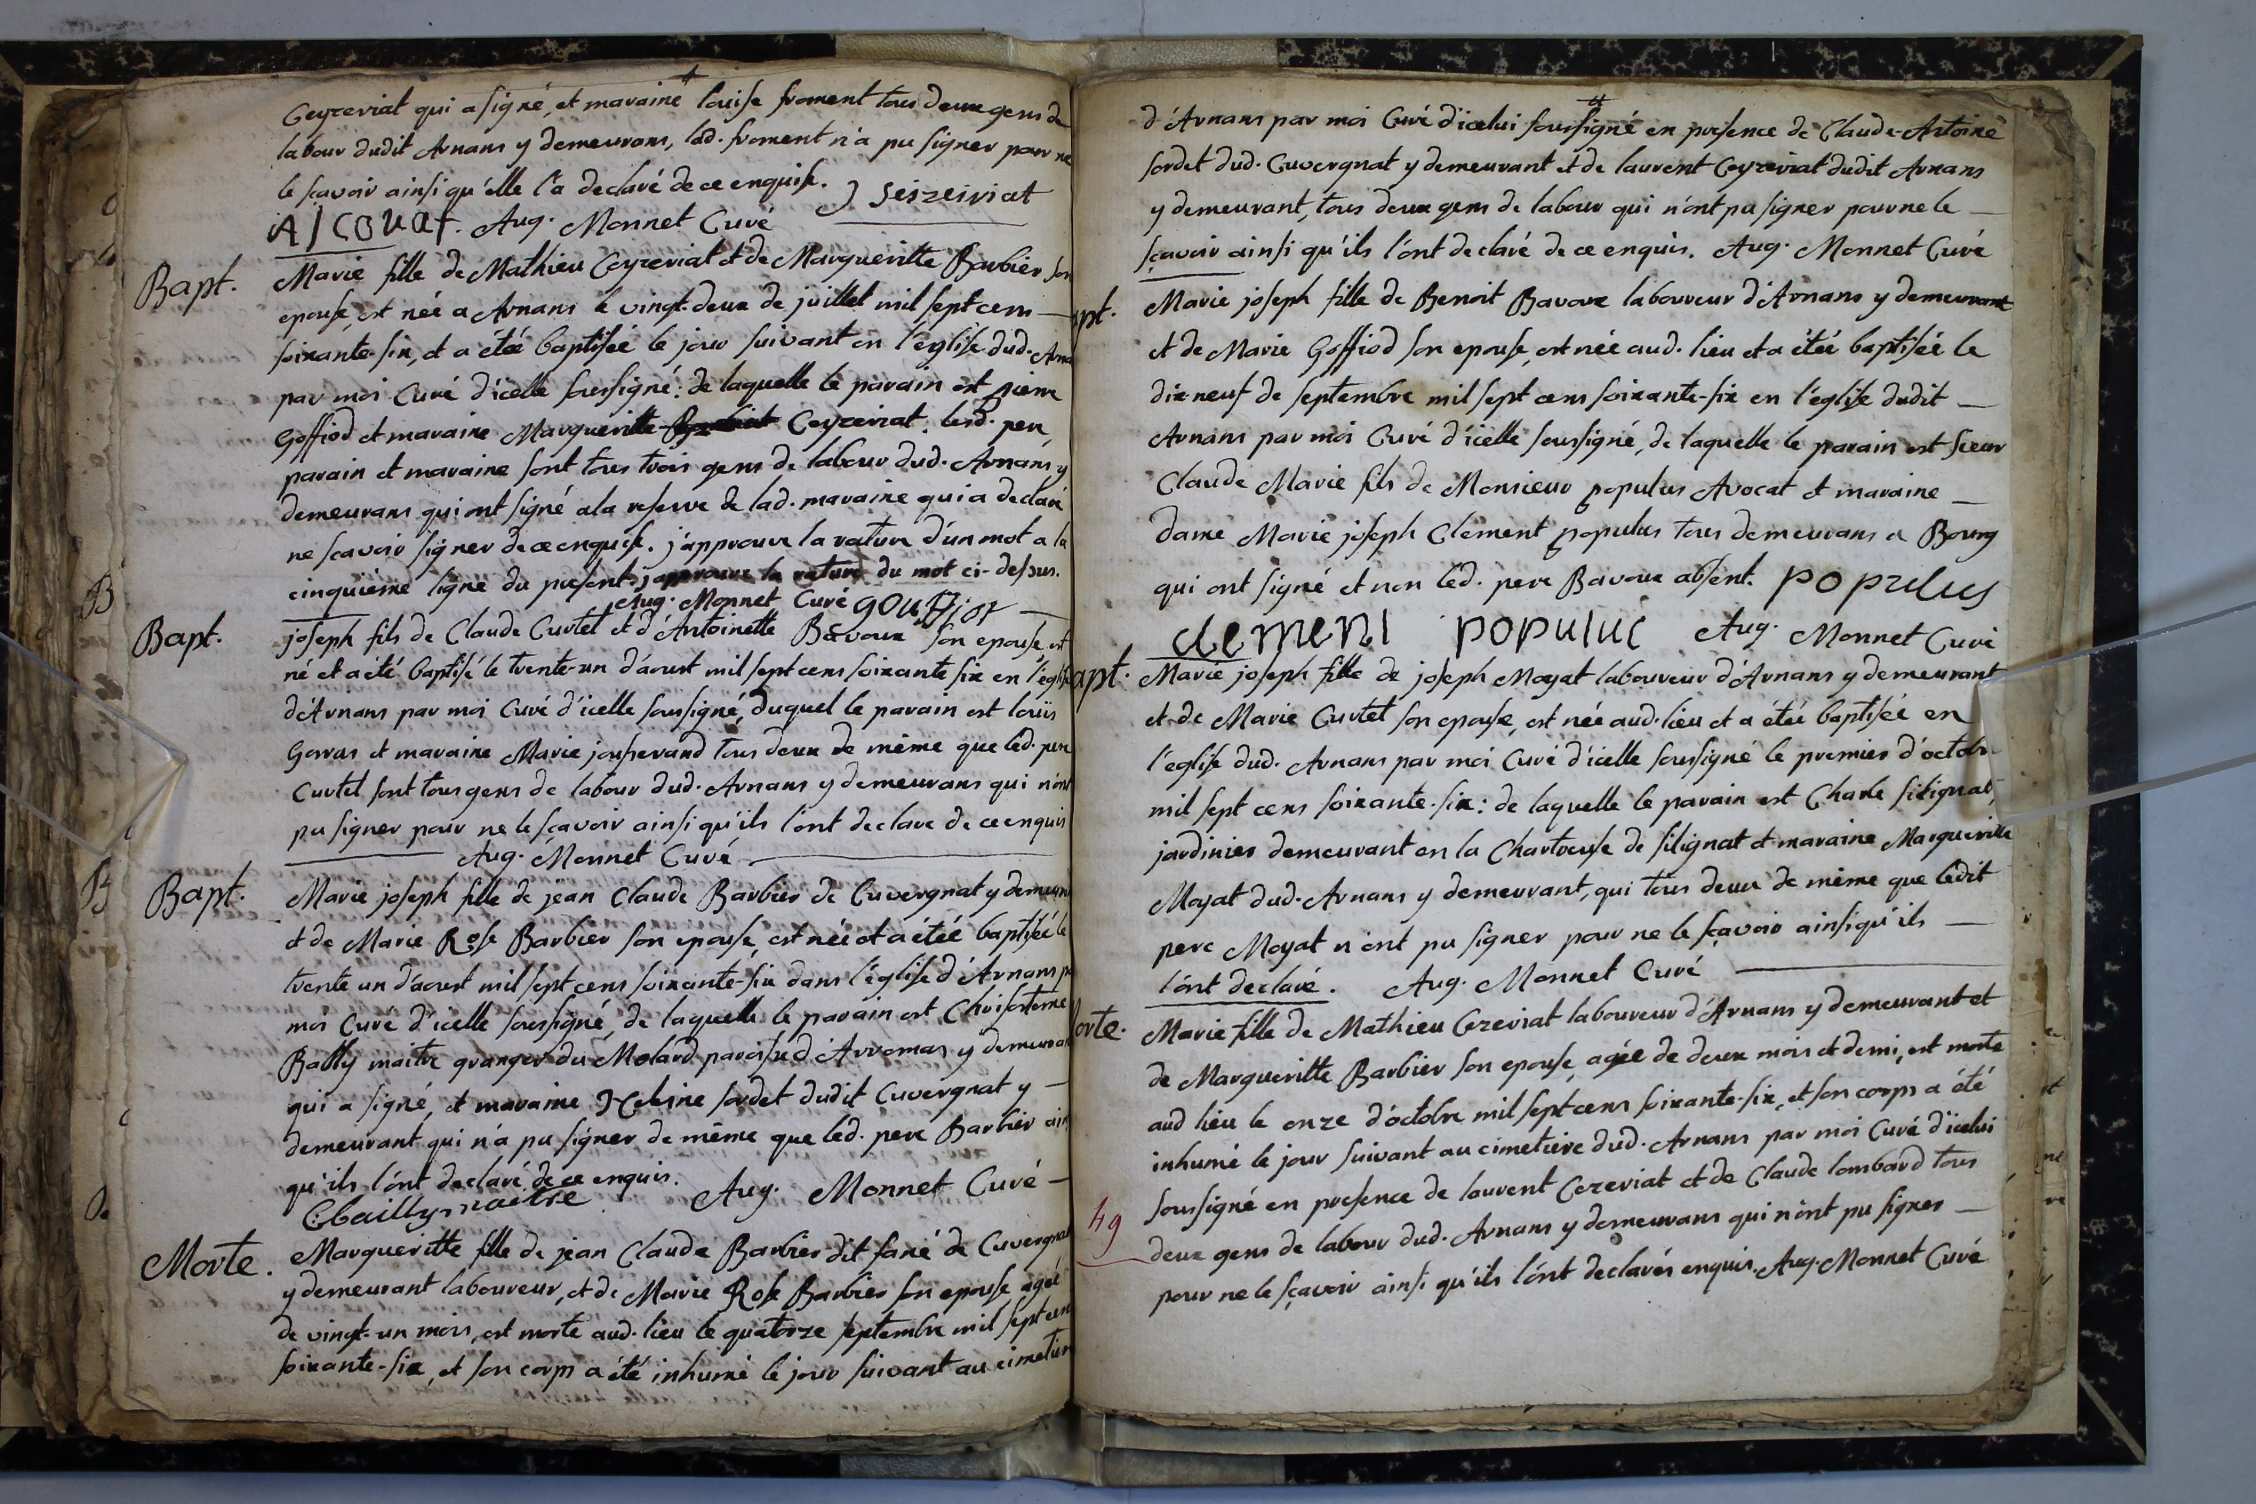 Ceyzeriat qui a signé, et maraine louise froment tous deux gens de
labour dudit Arnans y demeurans, lad. froment n'a pu signer pour ne
le sçavoir ainsi qu'elle l'a declaré de ce enquise. J Seizeiriat
Aug. Monnet Curé
Bapt. Marie fille de Mathieu Ceyzeriat et de Margueritte Barbier son
epouse, est née a Arnans le vingt-deux de juillet mil sept cens
soixante-six, et a étée baptisée le jour suivant en l'eglise dud. Arna
par moi Curé d'icelle soussigné: de laquelle le parain est pierre
Goffiod et maraine Margueritte Ceyzeriat. lesd. pere,
parain et maraine sont tous trois gens de labour dud. Arnans y
demeurans qui ont signé a la reserve de lad. maraine qui a declaré
ne sçavoir signer de ce enquise. j'approuve la rature d'un mot a la
cinquième ligne du present. j'approuve la rature du mot ci-dessus.
Aug. Monnet Curé
Bapt. joseph fils de Claude Curtet et d'Antoinette Bavoux son epouse, est
né et a été baptisé le trente-un d'aoust mil sept cens soixante six en l'eglise
d'Arnans par moi Curé d'icelle soussigné, duquel le parain est loüis
Gorras et maraine Marie jousserand tous deux de même que led. pere
Curtet sont tous gens de labour dud. Arnans y demeurans qui n'ont
pu signer pour ne le sçavoir ainsi qu'ils l'ont declaré de ce enquis
Aug. Monnet Curé
Bapt. Marie joseph fille de jean Claude Barbier de Cuvergnat y demeurant
et de Marie Rose Barbier son epouse, est née et a étée baptisée le
trente un d'aoust mil sept cens soixante-six dans l'église d'Arnans par
moi Curé d'icelle soussigné, de laquelle le parain est Chrisostome
Bailly maitre granger du Molard paroisse d'Arromas y demeurant
qui a signé, et maraine Helene sordet dudit Cuvergnat y
demeurant qui n'a pu signer de même que led. pere Barbier ains
qu'ils l'ont declaré de ce enquis.
Cbailly maitre Aug. Monnet Curé
Morte. Margueritte fille de jean Claude Barbier dit fané de Cuvergnat
y demeurant laboureur, et de Marie Rose Barbier son epouse agée
de vingt-un mois, est morte aud. lieu le quatorze septembre mil sept cens
soixante-six, et son corps a été inhumé le jour suivant au cimetiere
d'Arnans par moi Curé d'icelui soussigné en presence de Claude-Antoine
sordet dud. Cuvergnat y demeurant et de laurent Ceyzeriat dudit Arnans
y demeurant, tous deux gens de labour qui n'ont pu signer pour ne le
sçavoir ainsi qu'ils l'ont declaré de ce enquis. Aug. Monnet Curé
apt. Marie joseph fille de Benoit Bavoux laboureur d'Arnans y demeurant
et de Marie Goffiod son epouse, est née aud. lieu et a étée baptisée le
dix neuf de septembre mil sept cens soixante-six en l'église dudit
Arnans par moi Curé d'icelle soussigné, de laquelle le parain est sieur
Claude Marie fils de Monsieur populus Avocat et maraine
dame Marie joseph Clement populus tous demeurans a Bourg
qui ont signé et non led. pere Bavoux absent. populus
clement populus Aug. Monnet Curé
apt. Marie joseph fille de joseph Moyat laboureur d'Arnans y demeurant
et de Marie Curtet son epouse, est née aud. lieu et a étée baptisée en
l'eglise dud. Arnans par moi Curé d'icelle soussigné le premier d'octobre
mil sept cens soixante-six: de laquelle le parain est Charle silignat,
jardinier demeurant en la Chartreuse de silignat et maraine Margueritte
Moyat dud. Arnans y demeurant, qui tous deux de même que ledit
pere Moyat n'ont pu signer pour ne le sçavoir ainsi qu'ils
l'ont declaré. Aug. Monnet Curé
orte. Marie fille de Mathieu Cezeriat laboureur d'Arnans y demeurant et
de Margueritte Barbier son epouse, agée de deux mois et demi, est morte
aud lieu le onze d'octobre mil sept cens soixante-six, et son corps a été
inhumé le jour suivant au cimetiere dud. Arnans par moi Curé d'icelui
soussigné en presence de laurent Cezeriat et de Claude lombard tous
49
deux gens de labour dud. Arnans y demeurans qui n'ont pu signer
pour ne le sçavoir ainsi qu'ils l'ont declarés enquis. Aug. Monnet Curé